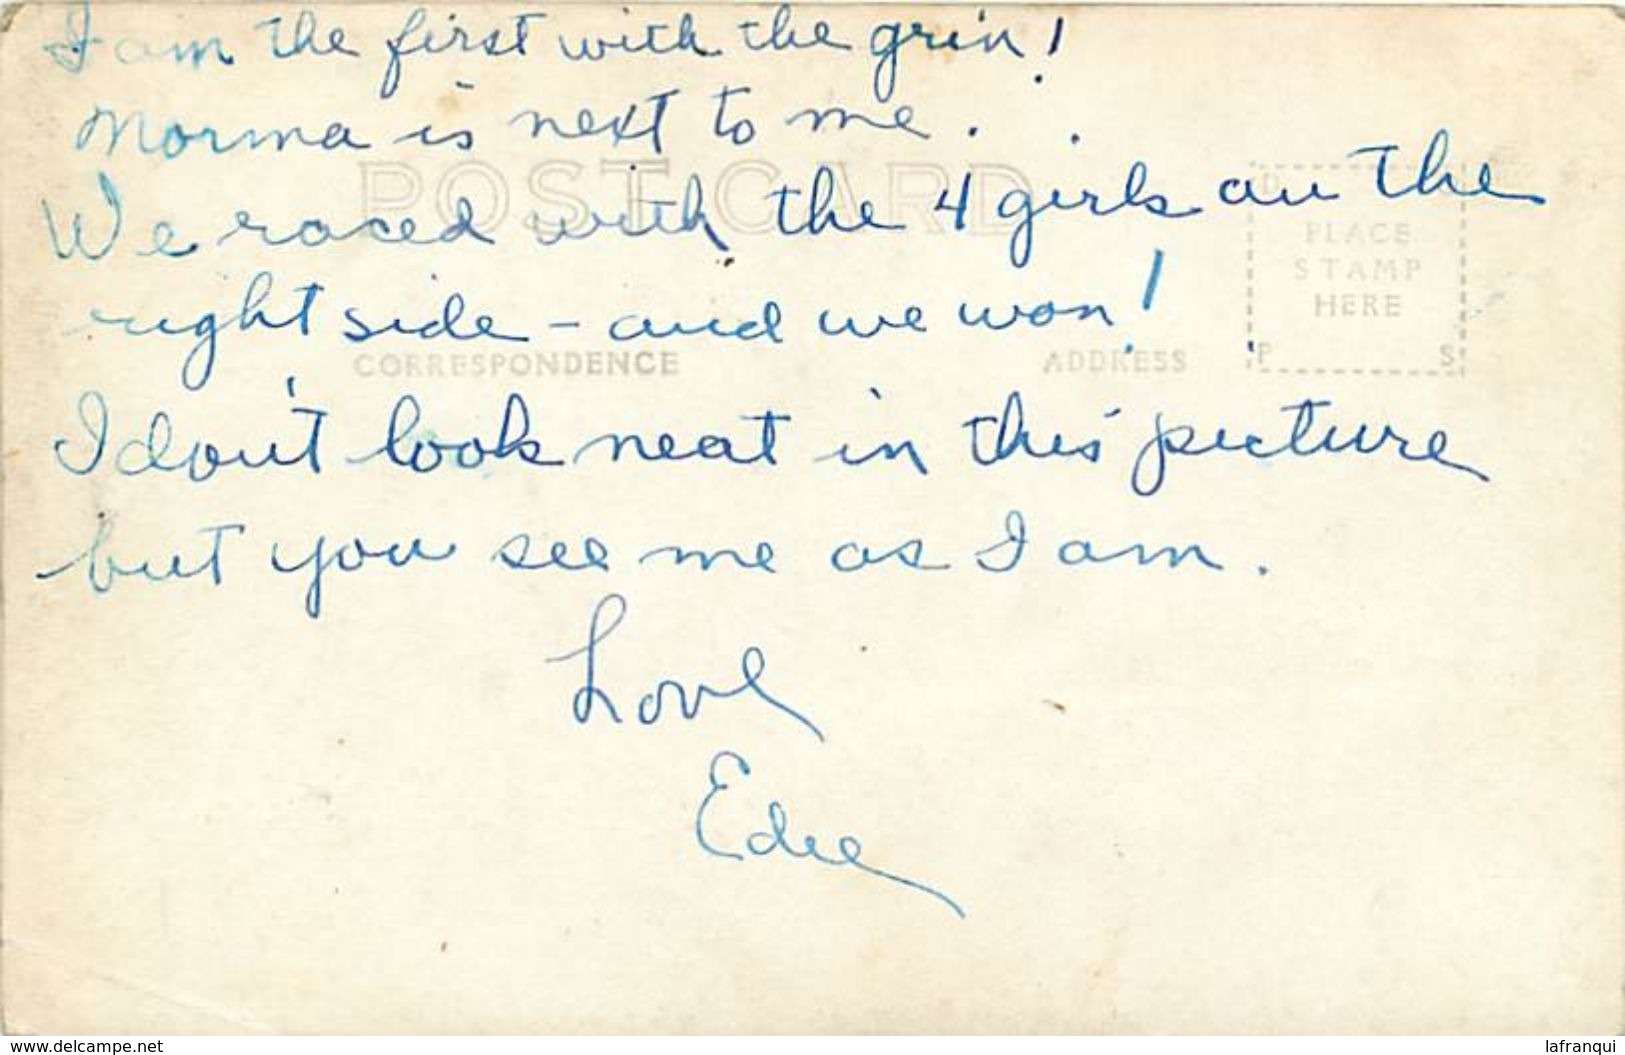 I am the first with the grin!
Norma is next to me.
POST CARD
We raced with the 4 girls on the
PLACE
STAMP
HERE
right side - and we won!
CORRESPONDENCE
ADDRESS
P S
I don't look neat in this picture
but you see me as I am.
Love
Edie
www.delcampe.net
lafranqui